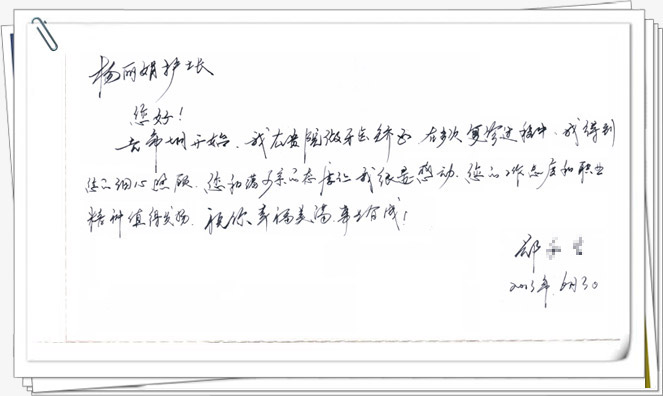 杨丽娟护士长
您好！
去年开始，我在贵院做牙齿矫正，在多次复诊过程中，我得到
您的细心照顾，您和蔼可亲的态度让我很是感动，您的工作态度和职业
精神值得发扬，祝你幸福美满，事业有成！
郑
2013年6月30